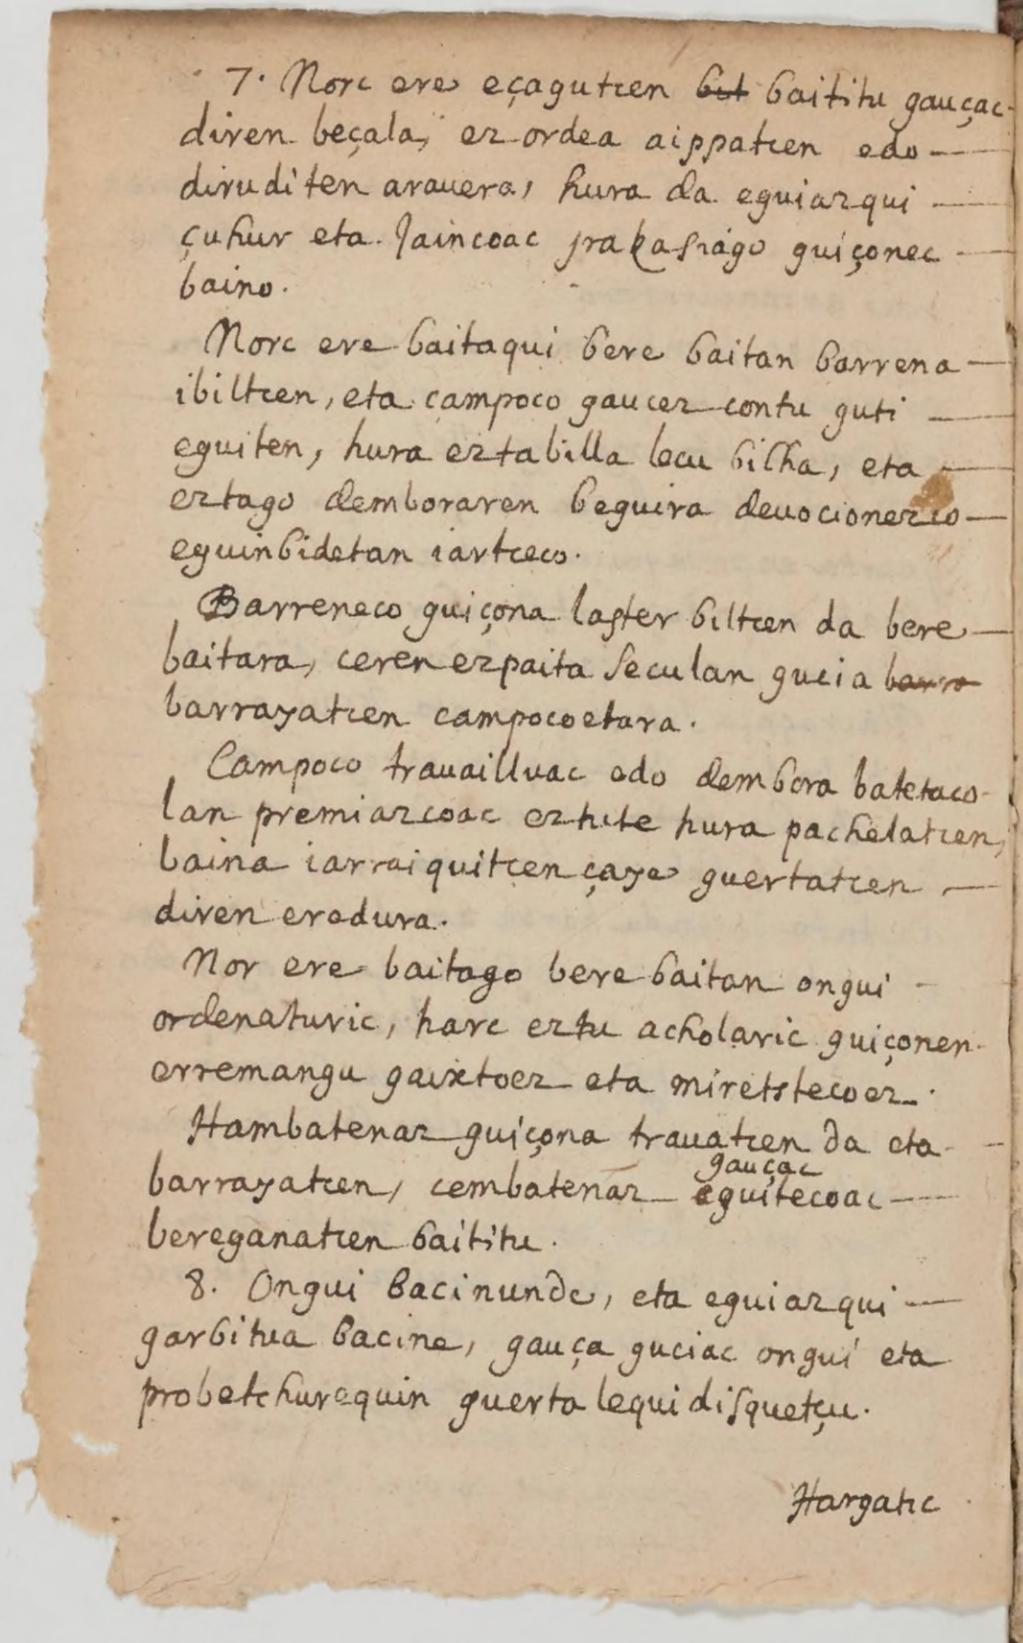 7. Norc ere eçagutcen but baititu gauçac
diren beçala, ez ordea aippatcen edo
diruditen arauera, hura da eguiazqui
çuhur eta Jaincoac jrakasiago guiçonec
baino.
Norc ere baitaqui bere baitan barrena
ibiltcen, eta campoco gaucez contu guti
eguiten, hura eztabilla lecu bilha, eta
eztago demboraren beguira deuocionezco
eguinbidetan iartceco.
Barreneco guiçona laster biltcen da bere
baitara, ceren ezpaita seculan gucia barra
barrayatcen campocoetara.
Campoco trauailluac edo dembora batetaco
lan premiazcoac eztute hura pachelatcen,
baina iarraiquitcen çaye guertatcen
diren eredura.
Nor ere baitago bere baitan ongui
ordenaturic, harc eztu acholaric guiçonen
erremangu gaixtoez eta miretstecoez.
Hambatenaz guiçona trauatcen da eta
gauçac
barrayatcen, cembatenaz eguitecoac
bereganatcen baititu.
8. Ongui bacinunde, eta eguiazqui
garbitua bacine, gauça guciac ongui eta
probetchurequin guerta lequidisquetçu.
Hargatic